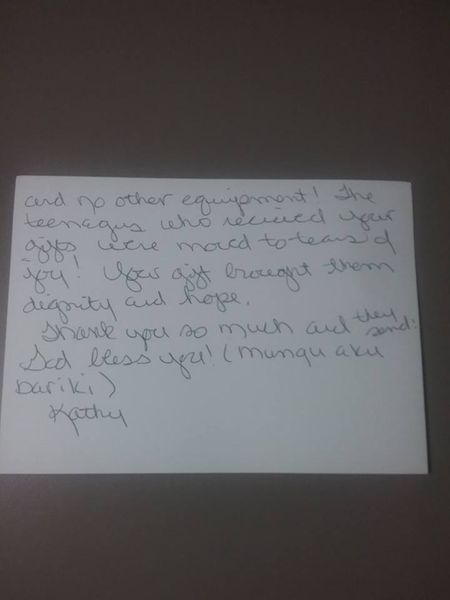 and no other equipment! The
teenagers who received your
gifts were moved to tears of
joy! Your gift brought them
dignity and hope.
Thank you so much and they send:
God bless you! (Mungu aku
bariki)
Kathy